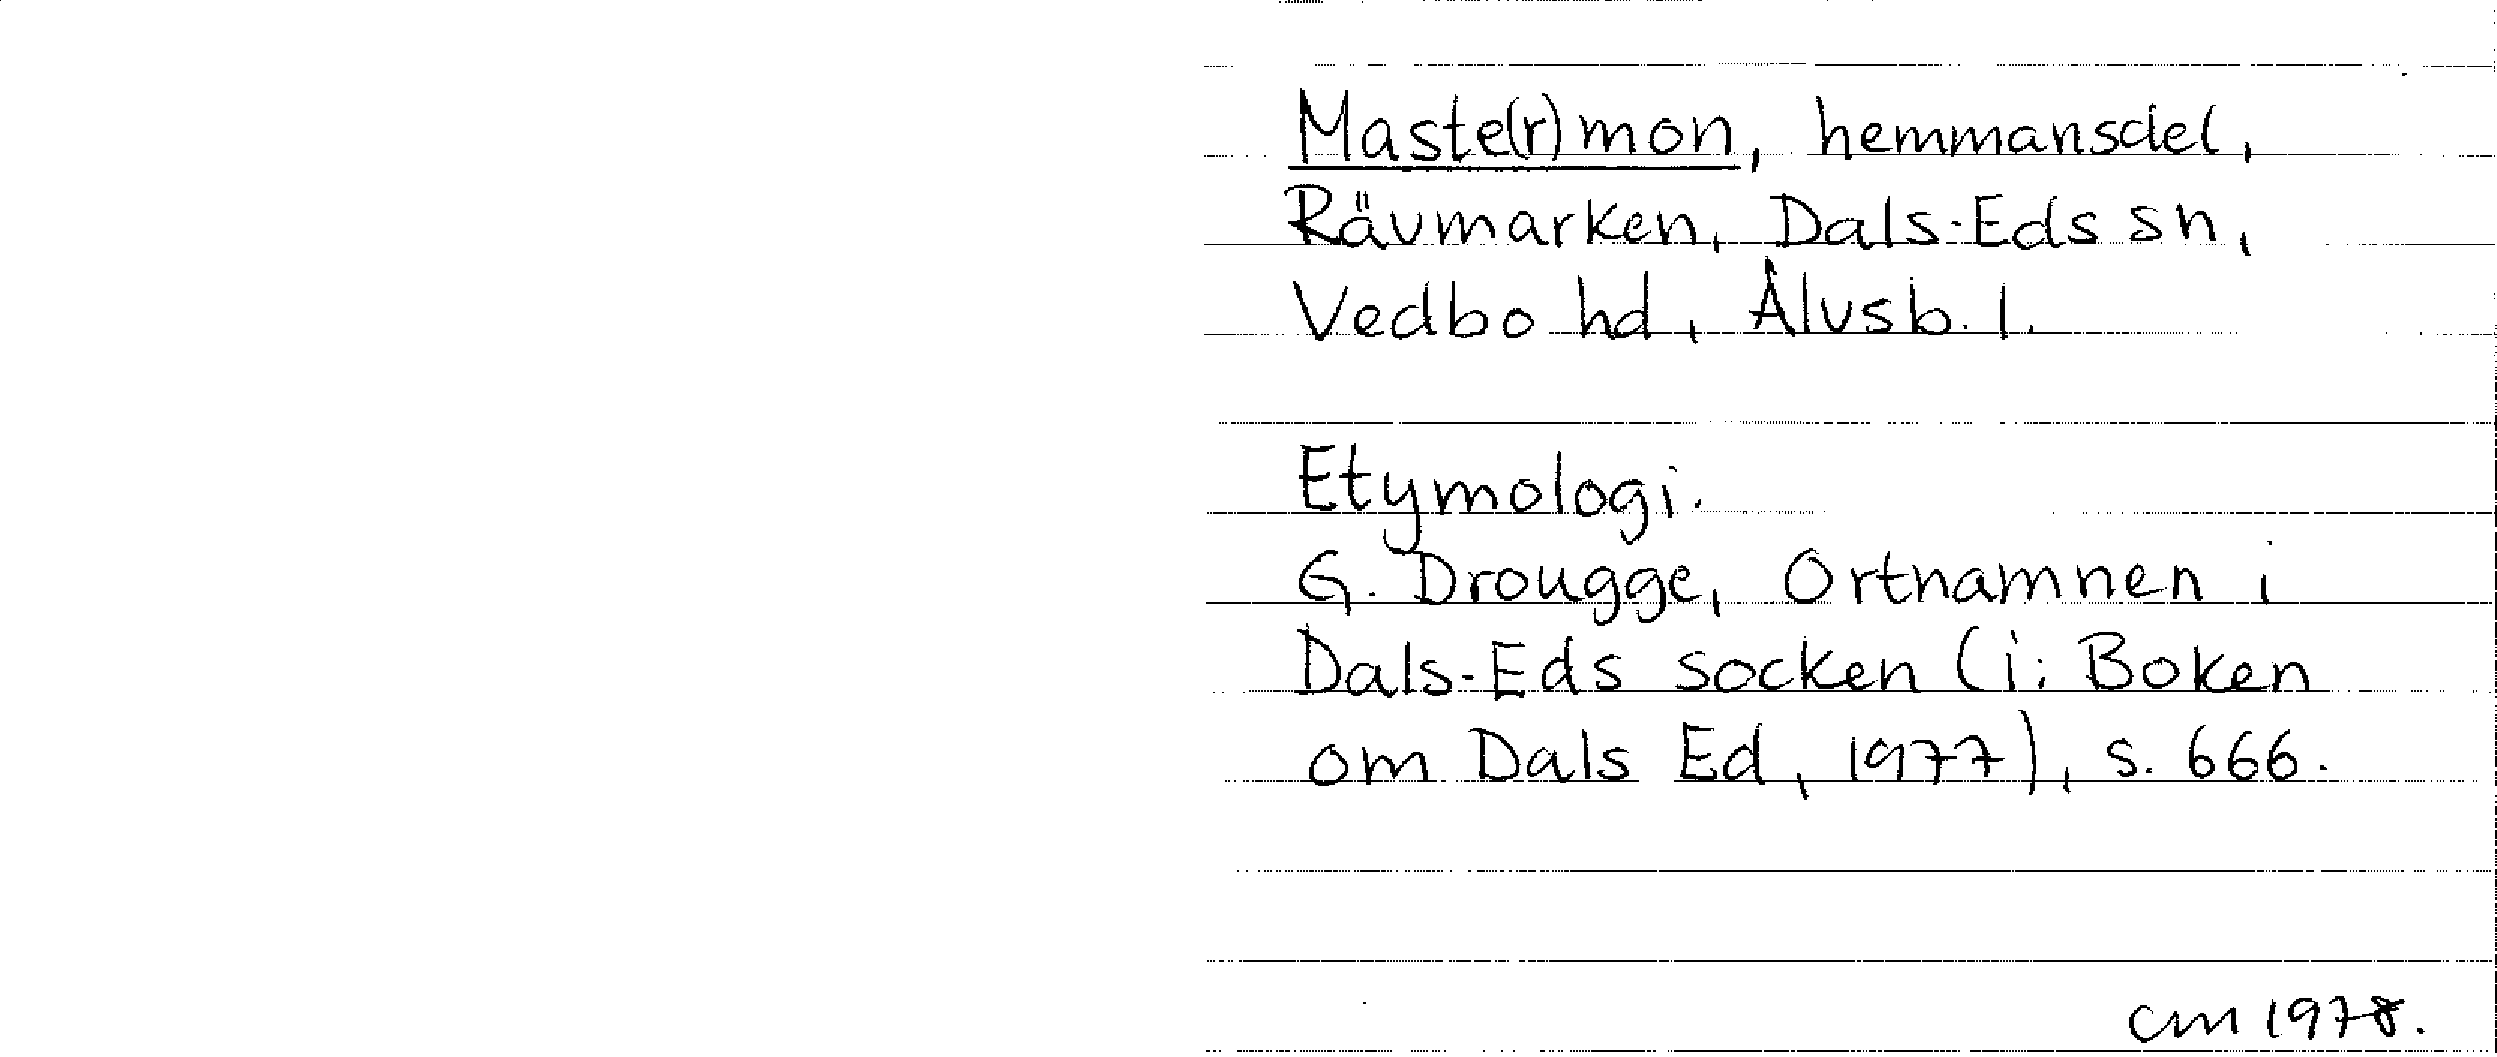 Maste(r)mon, hemmansdel,
Rävmarken, Dals-Eds sn,
Vedbo hd, Älvsb. l.
Etymologi.
G. Drougge, Ortnamnen i
Dals-Eds socken (i: Boken
om Dals Ed, 1977), s. 666.
CM 1978.